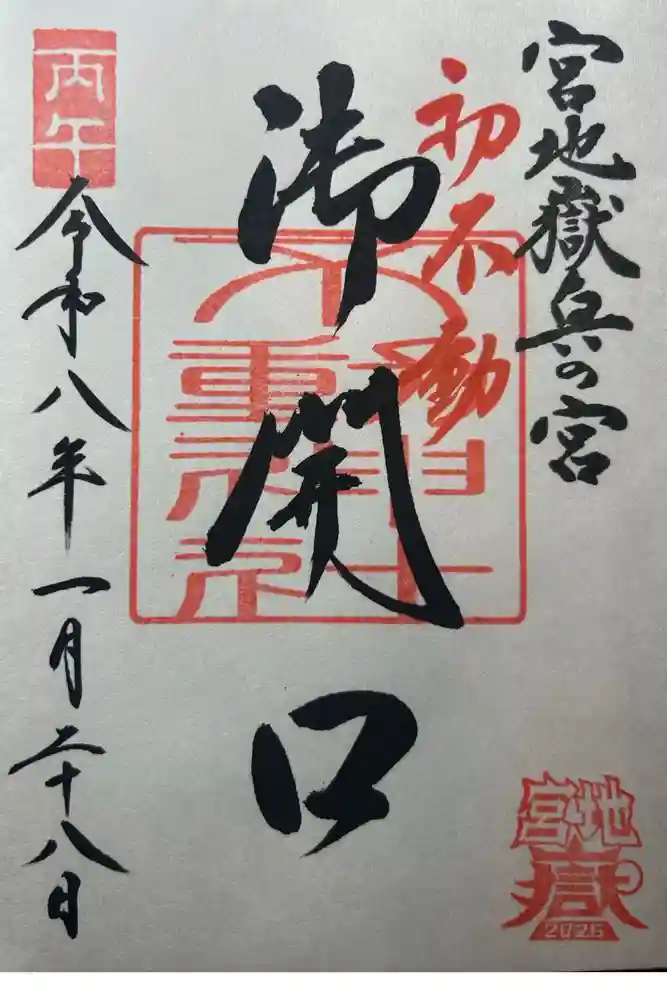 宮地嶽兵の宮
初不動
御開口
丙午
令和八年一月二十八日
宮地
嶽
2026